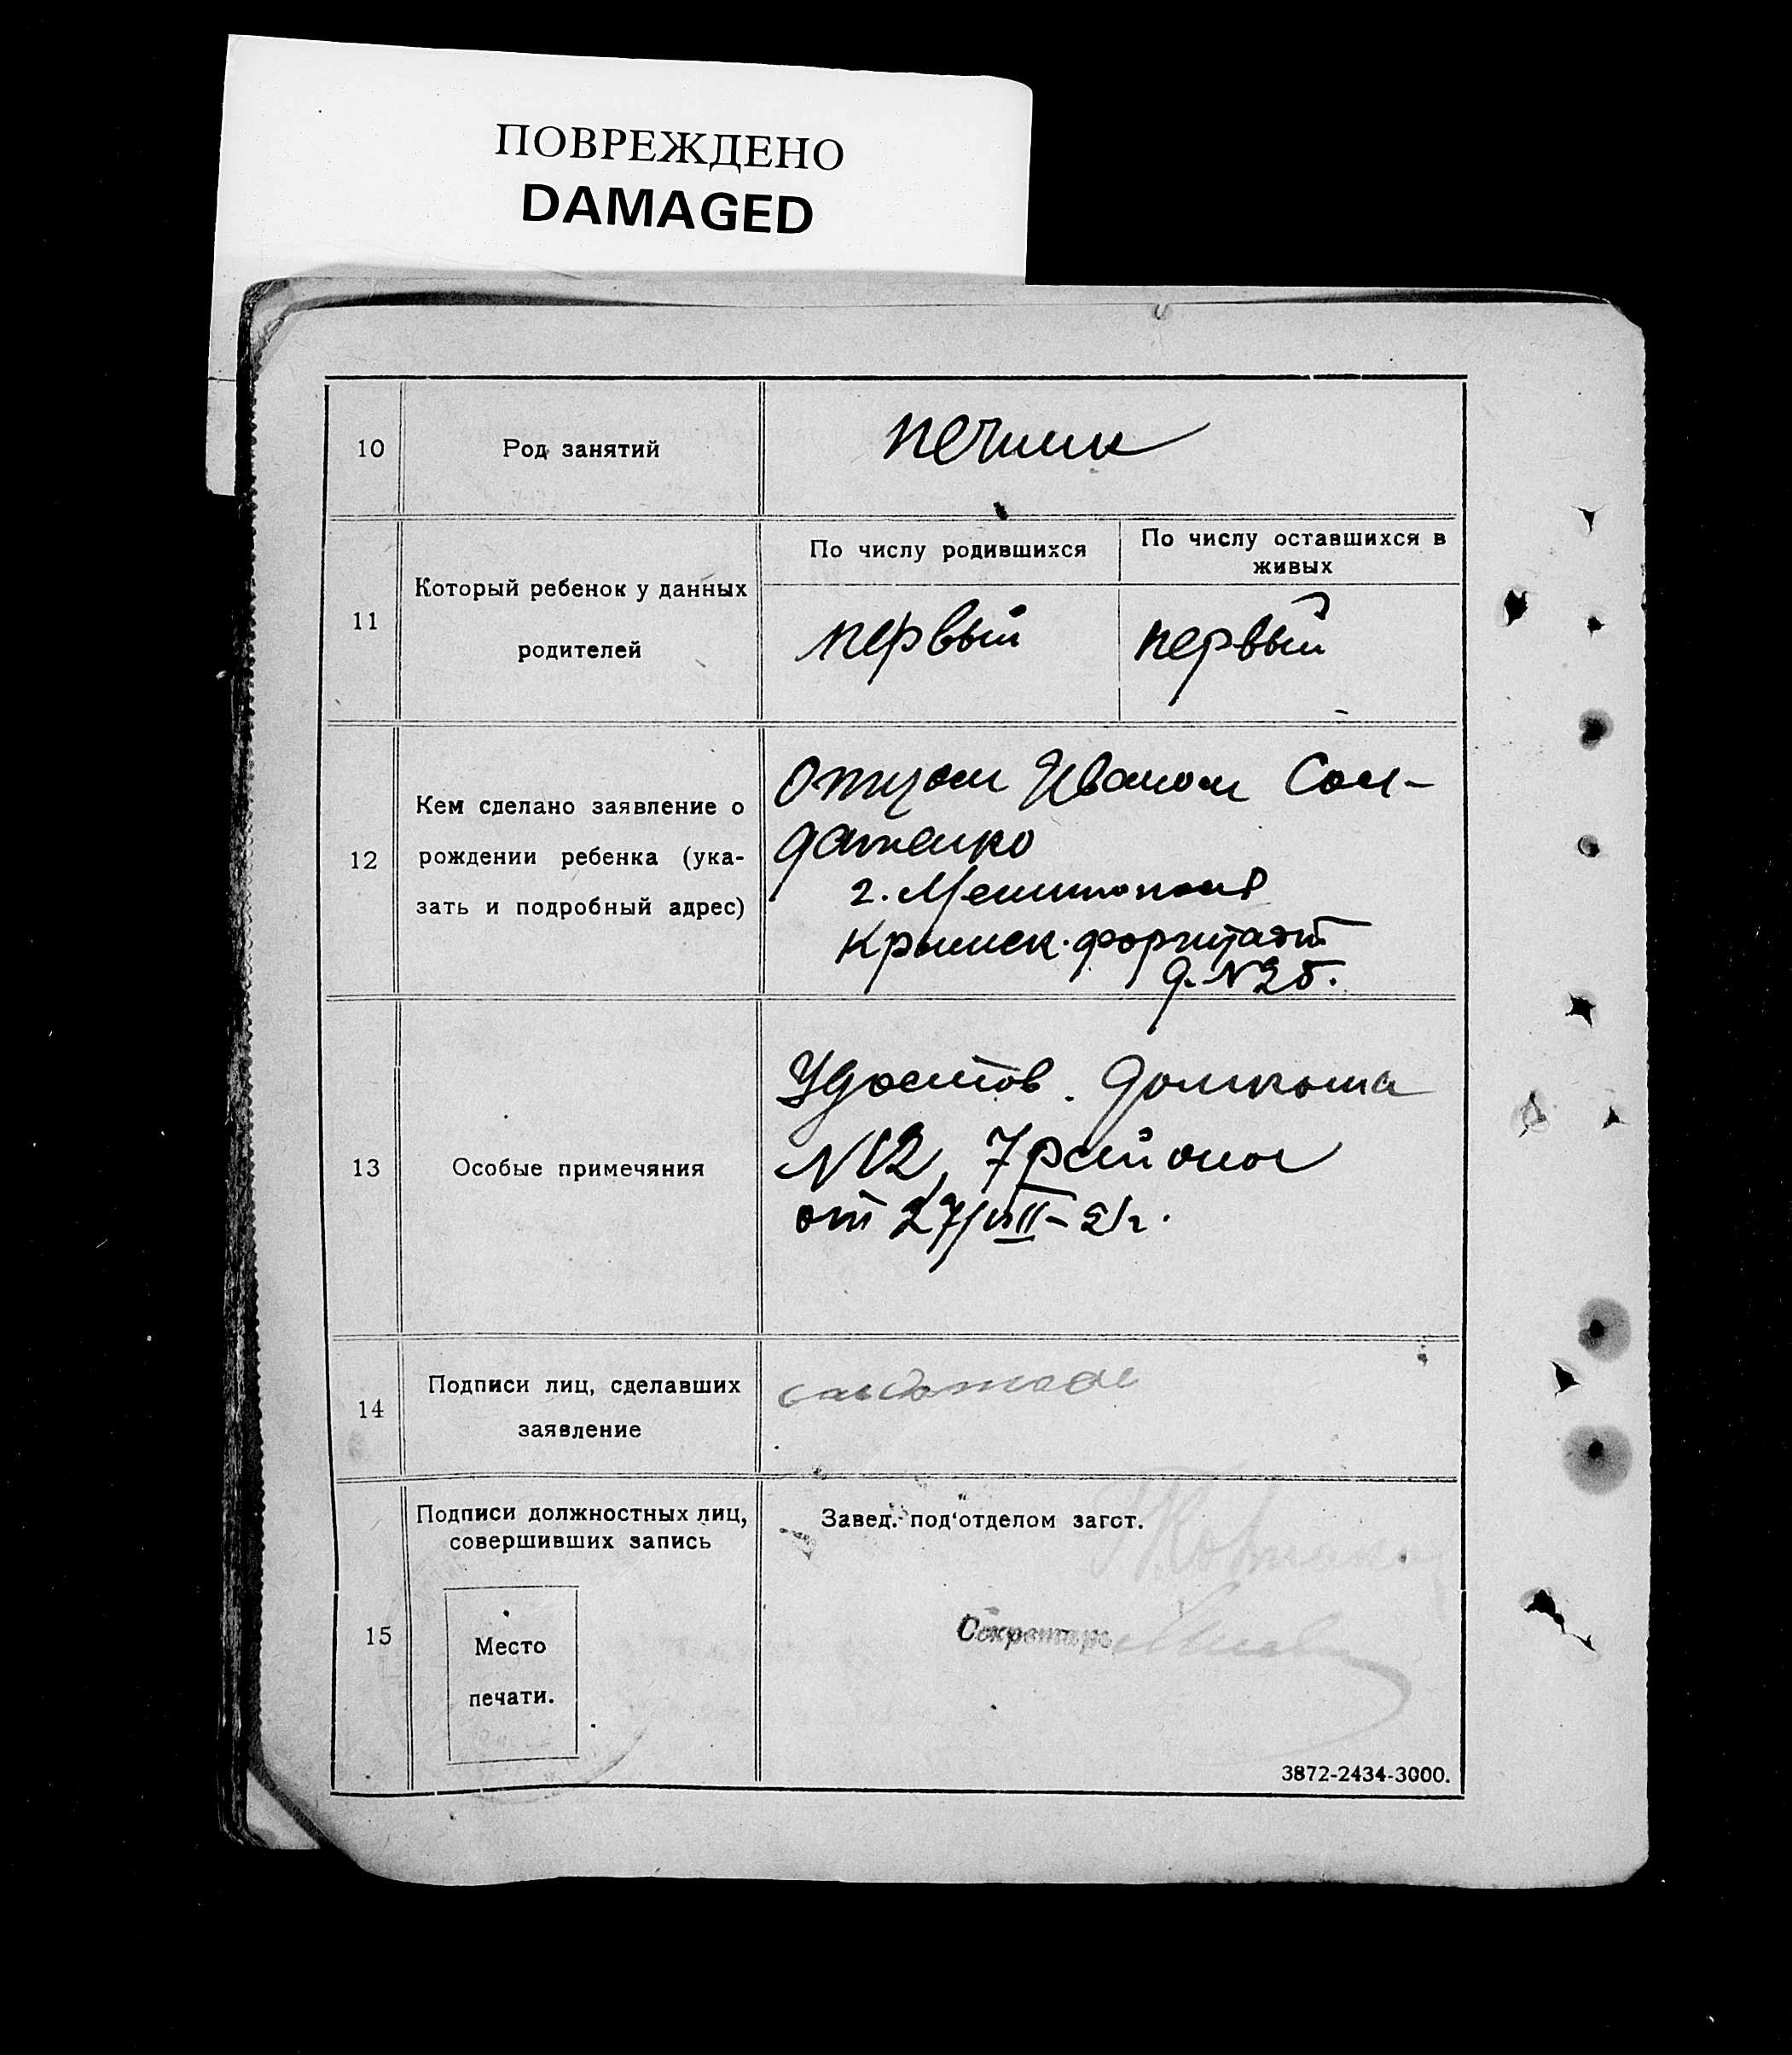 ПОВРЕЖДЕНО
DAMAGED
10
Род занятий
печник
11
Который ребенок у данных
родителей
По числу родившихся
По числу оставшихся в
живых
первый
первый
12
Кем сделано заявление о
рождении ребенка (ука-
зать и подробный адрес)
отцом Иваном Сол-
датенко
г. Мелитополь
Крымск. форштадт
д. № 25.
13
Особые примечяния
Удостов. домкома
№ 12, 7 района
от 27/VII-21г.
14
Подписи лиц, сделавших
заявление
15
Подписи должностных лиц,
совершивших запись
Место
печати.
Завед. под'отделом загст.
Секретарь
3872-2434-3000.